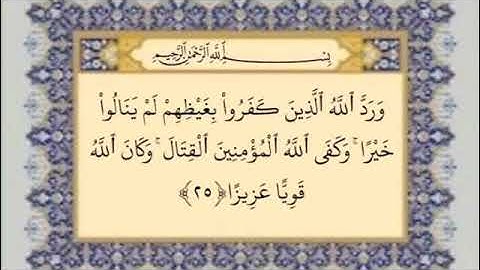 بِسْمِ ٱللَّهِ ٱلرَّحْمَٰنِ ٱلرَّحِيمِ
وَرَدَّ ٱللَّهُ ٱلَّذِينَ كَفَرُوا۟ بِغَيْظِهِمْ لَمْ يَنَالُوا۟
خَيْرًا ۚ وَكَفَى ٱللَّهُ ٱلْمُؤْمِنِينَ ٱلْقِتَالَ ۚ وَكَانَ ٱللَّهُ
قَوِيًّا عَزِيزًا ﴿٢٥﴾